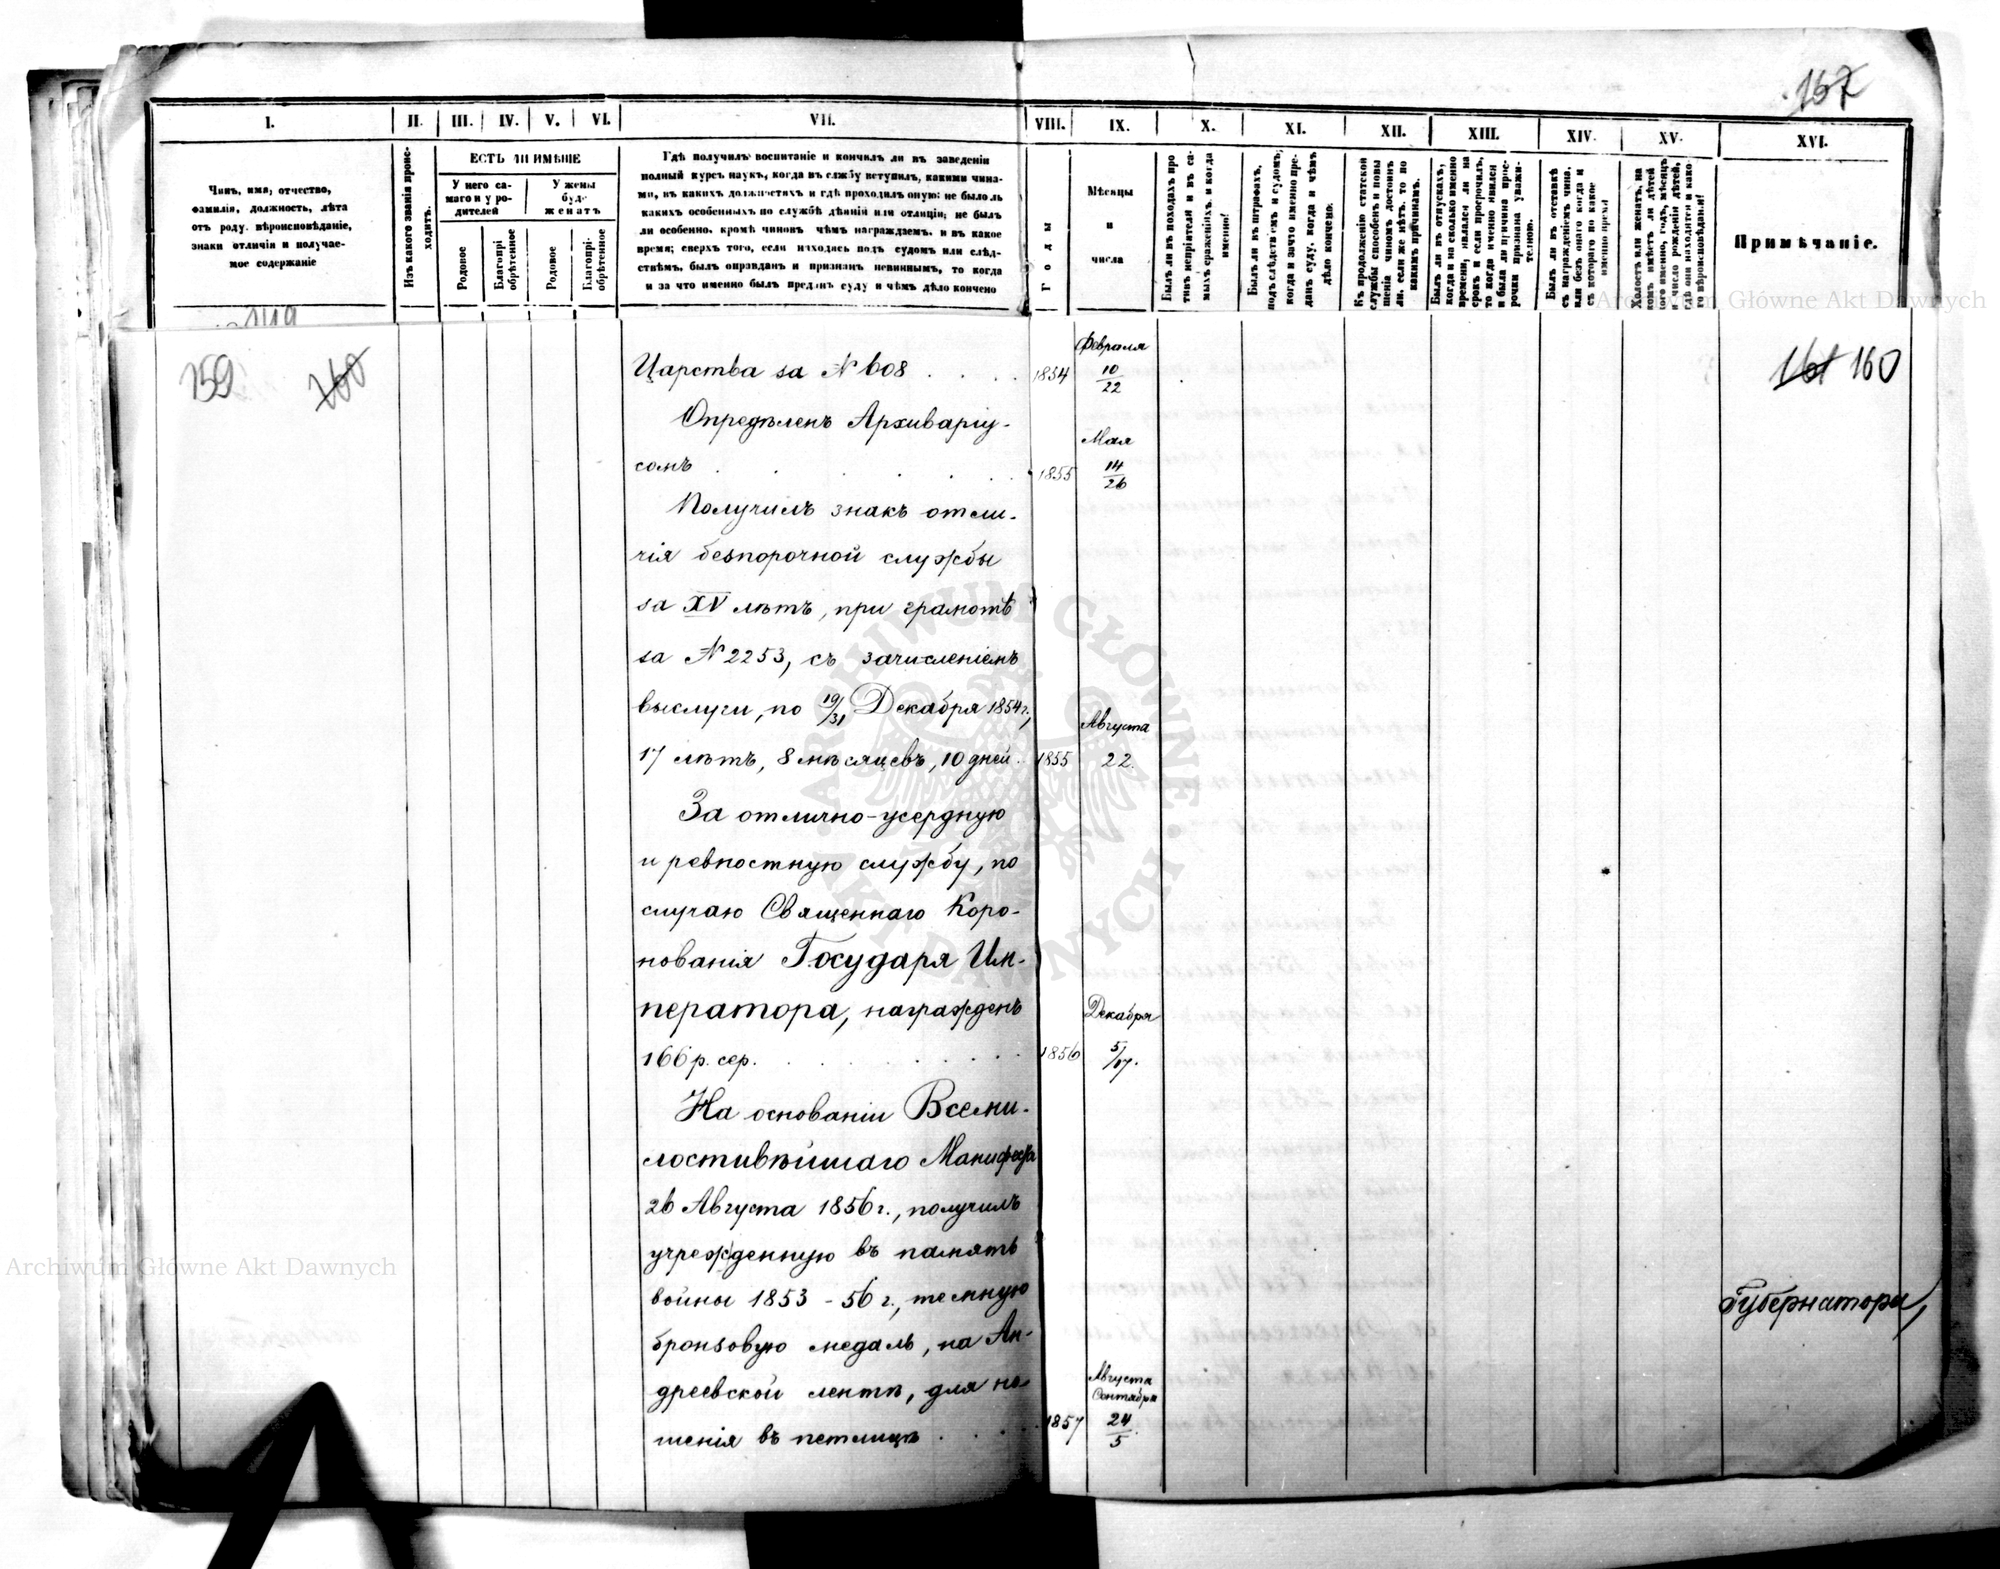 167
I. II. III. IV. V. VI. VII. VIII. IX. X. XI. XII. XIII. XIV. XV. XVI.
Чинъ, имя, отчество,
фамилія, должность, лѣта
отъ роду, вѣроисповѣданіе,
знаки отличія и получае-
мое содержаніе
Изъ какого званія проис-
ходитъ.
ЕСТЬ ЛИ ИМѢНІЕ
У него са-
маго и у ро-
дителей
У жены
буде
женатъ
Родовое
Благопрі-
обрѣтенное
Родовое
Благопрі-
обрѣтенное
Гдѣ получилъ воспитаніе и кончилъ ли въ заведеніи
полный курсъ наукъ, когда въ службу вступилъ, какими чина-
ми, въ какихъ должностяхъ и гдѣ проходилъ оную: не было ль
какихъ особенныхъ по службѣ дѣяній или отлицій; не былъ
ли особенно, кромѣ чиновъ чѣмъ награждаемъ, и въ какое
время; сверхъ того, если находясь подъ судомъ или слѣд-
ствіемъ, былъ оправданъ и признанъ невиннымъ, то когда
и за что именно былъ преданъ суду и чѣмъ дѣло кончено
Годы
Мѣсяцы
и
числа
Былъ ли въ походахъ про
тивъ непріятеля и въ са-
мыхъ сраженіяхъ и когда
именно?
Былъ ли въ штрафахъ,
подъ слѣдствіемъ и судомъ;
когда и за что именно пре-
данъ суду, когда и чѣмъ
дѣло кончено.
Къ продолженію статской
службы способенъ и повы
шенія чиномъ достоинъ
ли, если же нѣтъ, то по
какимъ причинамъ.
Былъ ли въ отпускахъ,
когда и на сколько именно
времени; являлся ли на
срокъ и если просрочилъ,
то когда именно явился
и была ли причина прос-
рочки признана уважи-
тельною.
Былъ ли въ отставкѣ
съ награжденіемъ чина,
или безъ онаго когда и
съ котораго по какое
именно время
Холостъ или женатъ, на
комъ имѣетъ ли дѣтей
кого именно, годъ, мѣсяцъ
и число рожденія дѣтей,
гдѣ они находятся и како-
го вѣроисповѣданія?
Примѣчаніе.
Archiwum Główne Akt Dawnych
149
159 160
161 160
Царства за № 608 . . . . 1854 Февраля 10/22
Опредѣленъ Архиваріу-
сомъ . . . . . . 1855 Мая 14/26
Получилъ знакъ отли-
чія безпорочной службы
за XV лѣтъ, при грамотѣ
за № 2253, съ зачисленіемъ
выслуги, по 19/31 Декабря 1854 г.,
17 лѣтъ, 8 мѣсяцевъ, 10 дней. 1855 Августа 22.
За отлично-усердную
и ревностную службу, по
случаю Священнаго Коро-
нованія Государя Им-
ператора, награжденъ
166 р. сер. . . . . . . 1856 Декабря 5/17.
На основаніи Всеми-
лостивѣйшаго Манифеста
26 Августа 1856 г., получилъ
учрежденную въ память
войны 1853 - 56 г., темную
бронзовую медаль, на Ан-
дреевской лентѣ, для но-
шенія въ петлицѣ . . . . 1857 Августа Сентября 24/5
Губернатора,
Archiwum Główne Akt Dawnych
ARCHIWUM GŁÓWNE AKT DAWNYCH